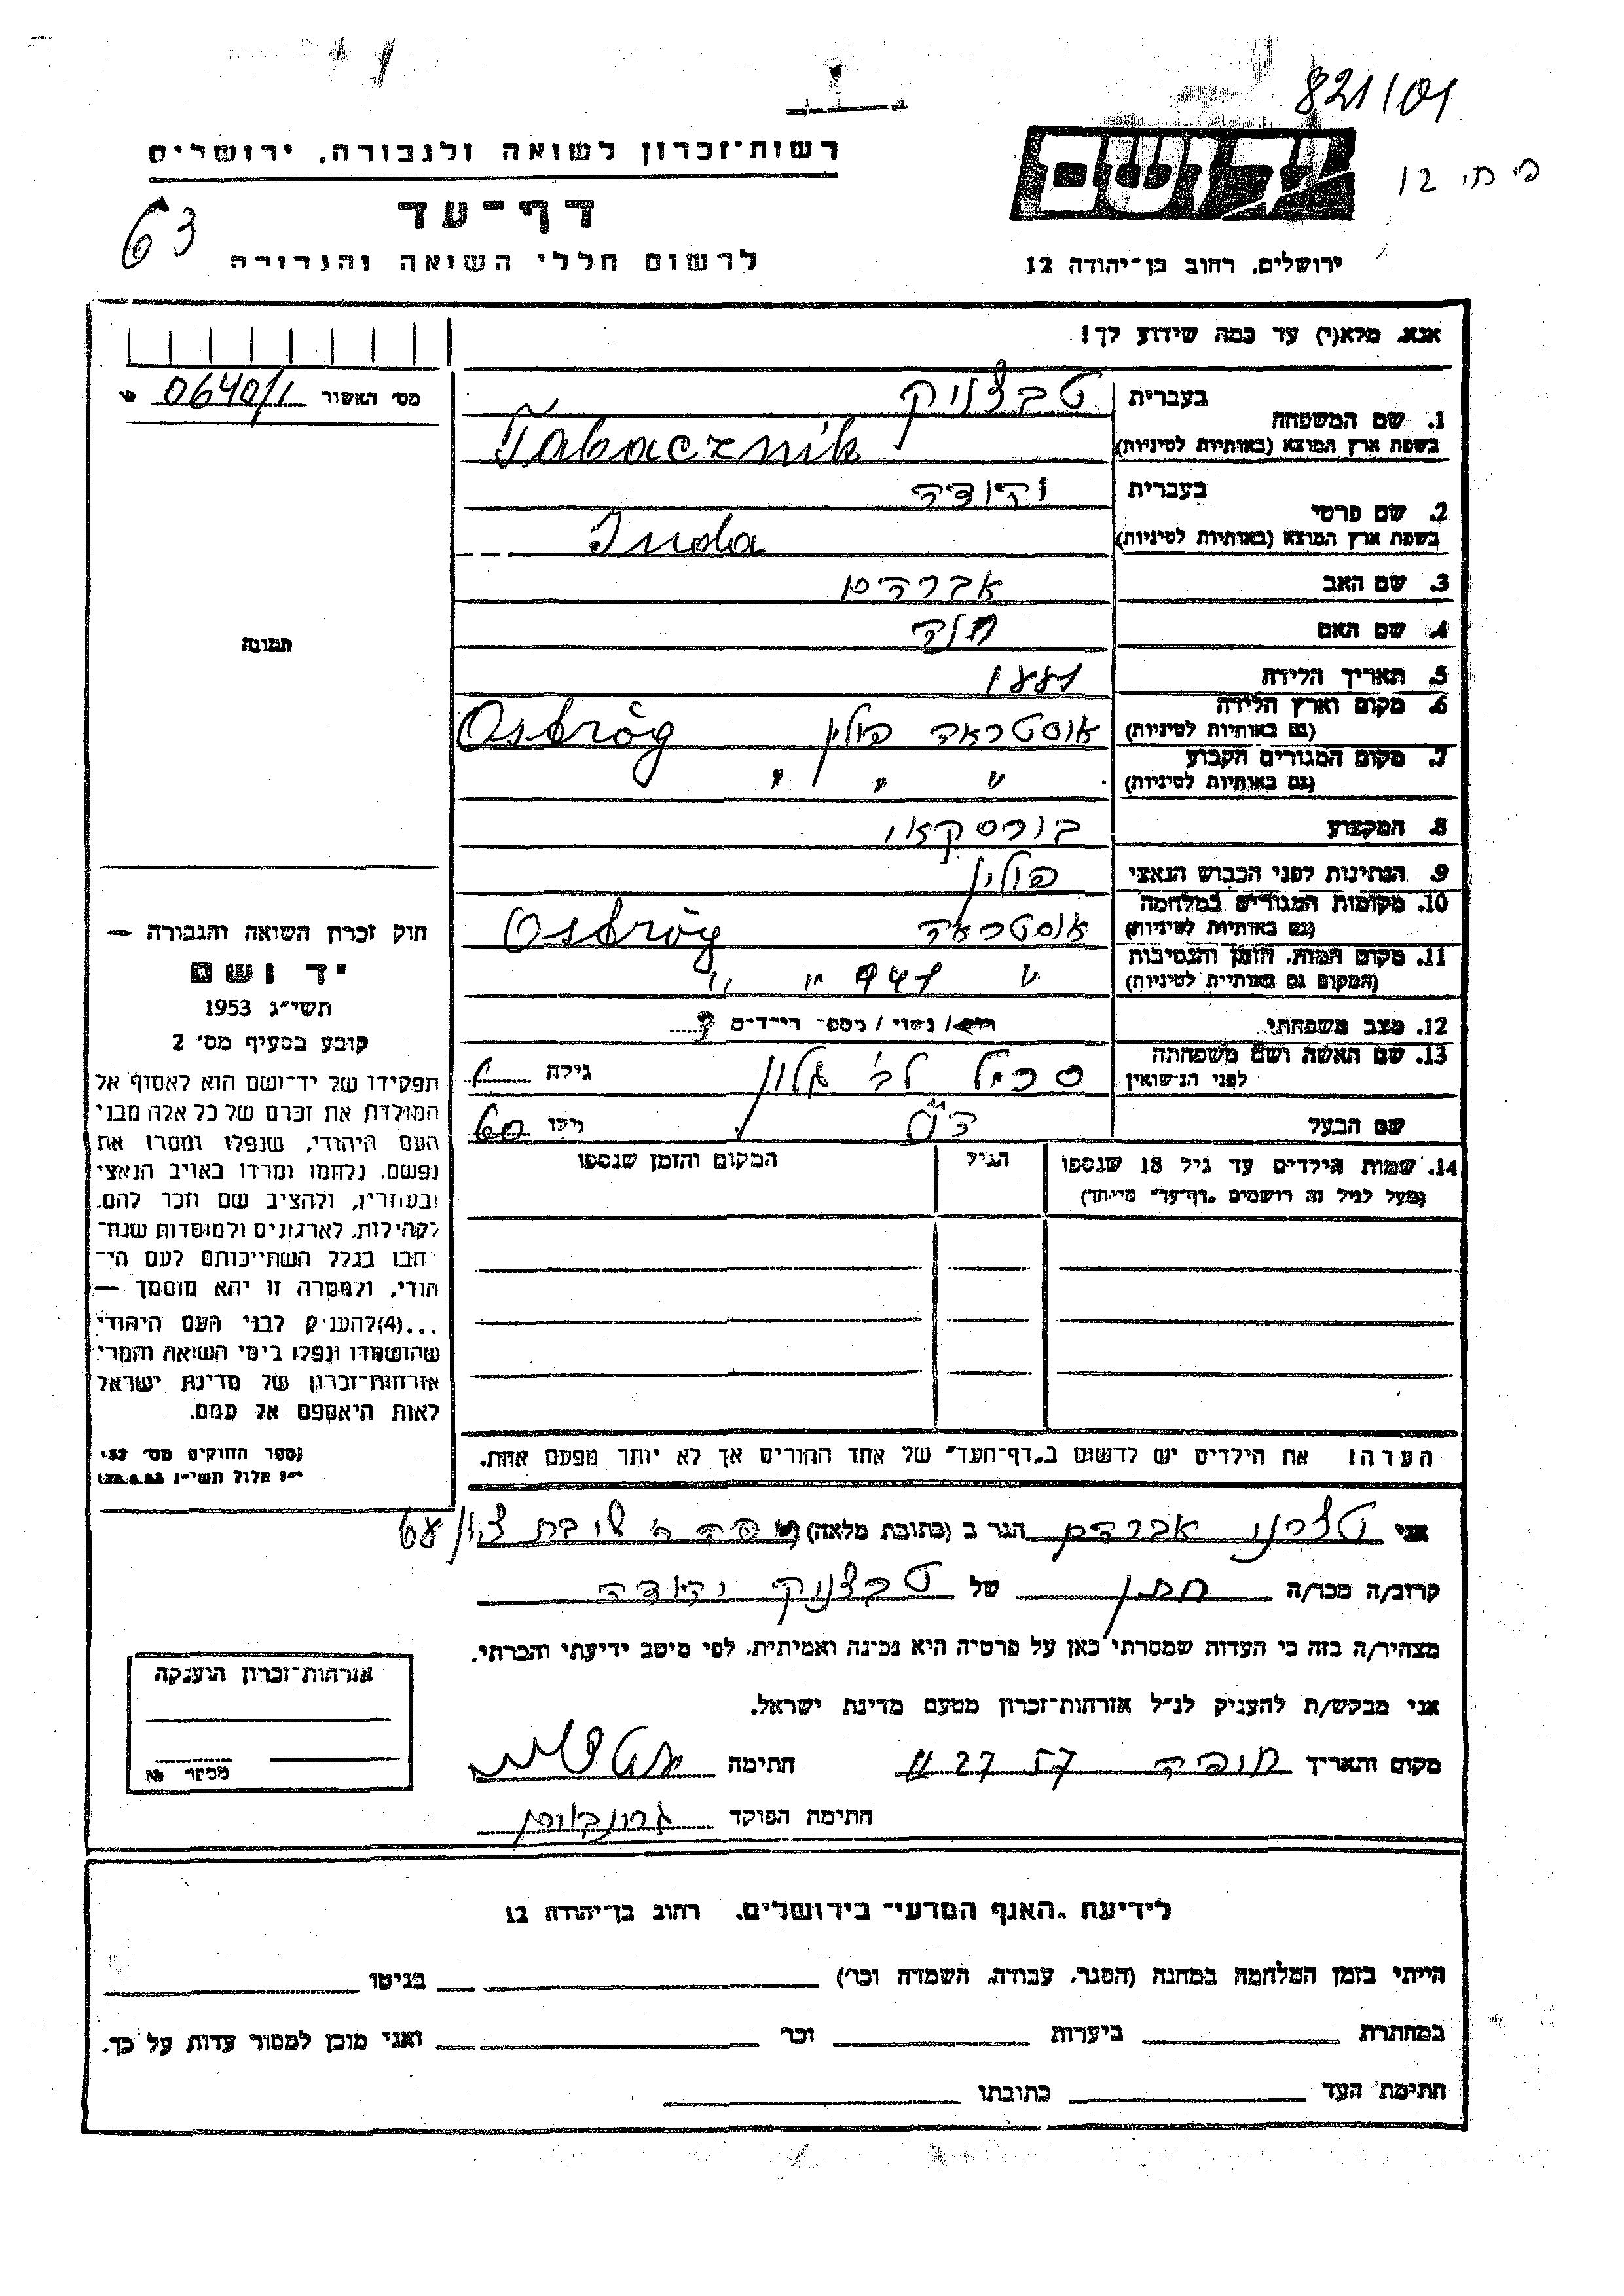 821/01
רשות־זכרון לשואה ולגבורה, ירושלים
יד ושם
12
דף־עד
63
לרשום חללי השואה והגבורה
ירושלים, רחוב בן־יהודה 12
אנא, מלא(י) עד כמה שידוע לך!
מס׳ האשור 0640/1
1. שם המשפחה
בעברית טבצניק
בשפת ארץ המוצא (באותיות לטיניות) Tabacznik
2. שם פרטי
בעברית יהודה
בשפת ארץ המוצא (באותיות לטיניות) Juda
3. שם האב אברהם
4. שם האם חנה
תמונה
5. תאריך הלידה 1881
6. מקום וארץ הלידה
(גם באותיות לטיניות) אוסטראה פולין Ostróg
7. מקום המגורים הקבוע
(גם באותיות לטיניות) " " "
8. המקצוע בורסקאי
9. הנתינות לפני הכבוש הנאצי פולין
10. מקומות המגורים במלחמה
(גם באותיות לטיניות) אוסטראה Ostróg
11. מקום המות, הזמן והנסיבות
(המקום גם באותיות לטיניות) " 941
12. מצב משפחתי
רווק / נשוי / מספר הילדים
13. שם האשה ושם משפחתה
לפני הנישואין
גילה
שם הבעל
גילו 60
14. שמות הילדים עד גיל 18 שנספו
(מעל לגיל זה רושמים „דף־עד” מיוחד)
הגיל
המקום והזמן שנספו
חוק זכרון השואה והגבורה —
יד ושם
תשי״ג 1953
קובע בסעיף מס׳ 2
תפקידו של יד־ושם הוא לאסוף אל
המולדת את זכרם של כל אלה מבני
העם היהודי, שנפלו ומסרו את
נפשם, נלחמו ומרדו באויב הנאצי
ובעוזריו, ולהציב שם וזכר להם,
לקהילות, לארגונים ולמוסדות שנח־
רבו בגלל השתייכותם לעם הי־
הודי, ולמטרה זו יהא מוסמך —
...(4) להעניק לבני העם היהודי
שהושמדו ונפלו בימי השואה והמרי
אזרחות־זכרון של מדינת ישראל
לאות היאספם אל עמם.
(ספר החוקים מס׳ 132,
י״ז אלול תשי״ג 28.8.53)
הערה! את הילדים יש לרשום ב„דף־העד” של אחד ההורים אך לא יותר מפעם אחת.
אני אברהם הגר ב (כתובת מלאה) שיבת ציון 68
קרוב/ה מכר/ה חתן של טבצניק יהודה
מצהיר/ה בזה כי העדות שמסרתי כאן על פרטיה היא נכונה ואמיתית, לפי מיטב ידיעתי והכרתי.
אני מבקש/ת להעניק לנ״ל אזרחות־זכרון מטעם מדינת ישראל.
מקום ותאריך חיפה 57 27 11 חתימה
חתימת הפוקד גרונבאום
אזרחות־זכרון הוענקה
מספר №
לידיעת „האגף המדעי” בירושלים, רחוב בן־יהודה 12
הייתי בזמן המלחמה במחנה (הסגר, עבודה, השמדה וכו׳) בגיטו
במחתרת ביערות וכו׳ ואני מוכן למסור עדות על כך.
חתימת העד כתובתו